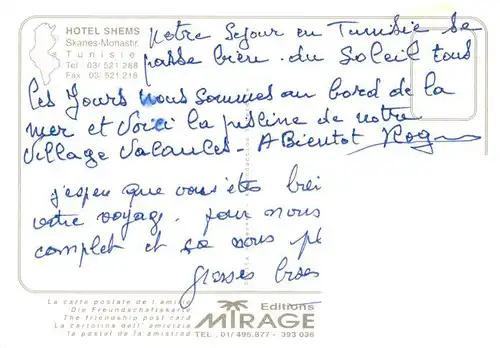 HOTEL SHEMS
Skanes-Monastir
Tunisie
Tel 03/521 288
Fax 03/521 218
Notre Sejour en Tunisie se
passe bien. du Soleil tous
les Jours nous sommes au bord de la
mer et Voici la piscine de notre
Village Vacances - A Bientot
j'espere que vous êtes
votre voyage. pour nous
complet et sa nous
Grosses
La carte postale de l'amitié
Die Freundschaftskarte
The friendship post card
La cartolina dell' amicizia
la postal de la amistad
Editions
MIRAGE
TEL. 01/495.877 - 393 036